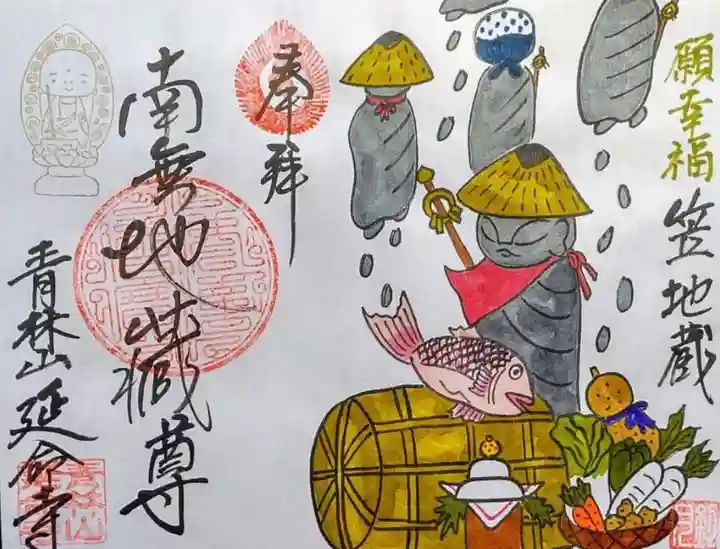 願幸福
笠地蔵
奉拝
南無地蔵尊
青林山 延命寺